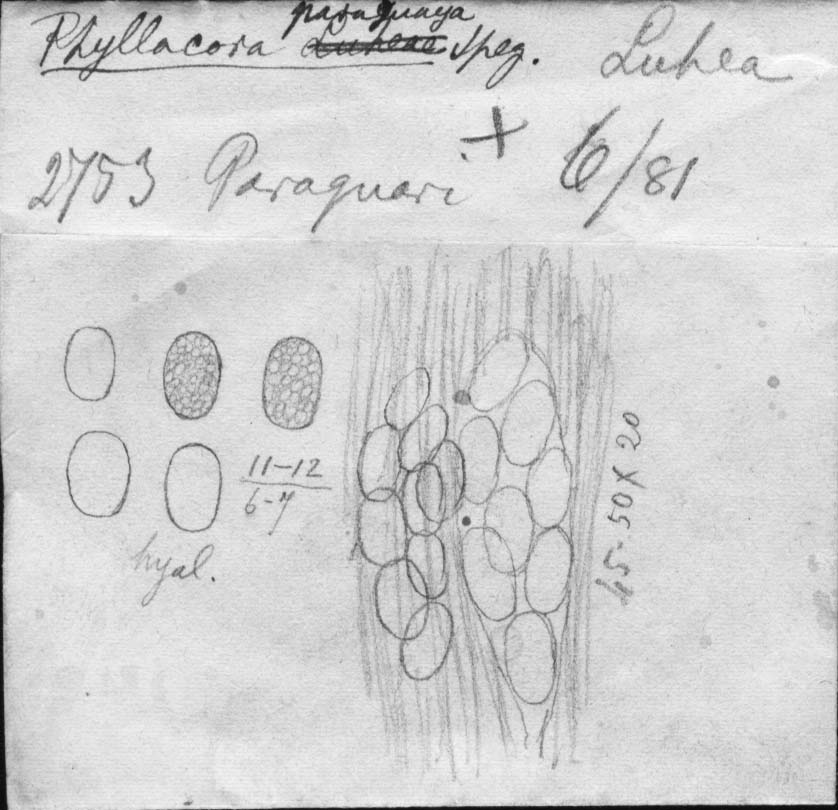 paraguaya
Phyllacora Luheae Speg. Luhea
2753 Paraguari + 6/81
11-12
6-7
hyal.
45-50 x 20